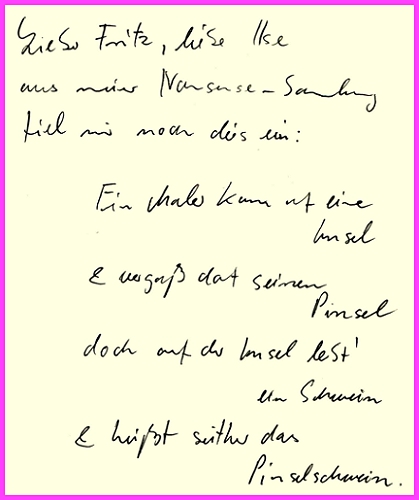 Lieber Fritz, liebe Ilse
aus meiner Nonsense-Sammlung
fiel mir noch dies ein:
Ein Maler kam auf eine
Insel
& vergaß dort seinen
Pinsel
doch auf der Insel lebt'
ein Schwein
& heißt seither das
Pinselschwein.